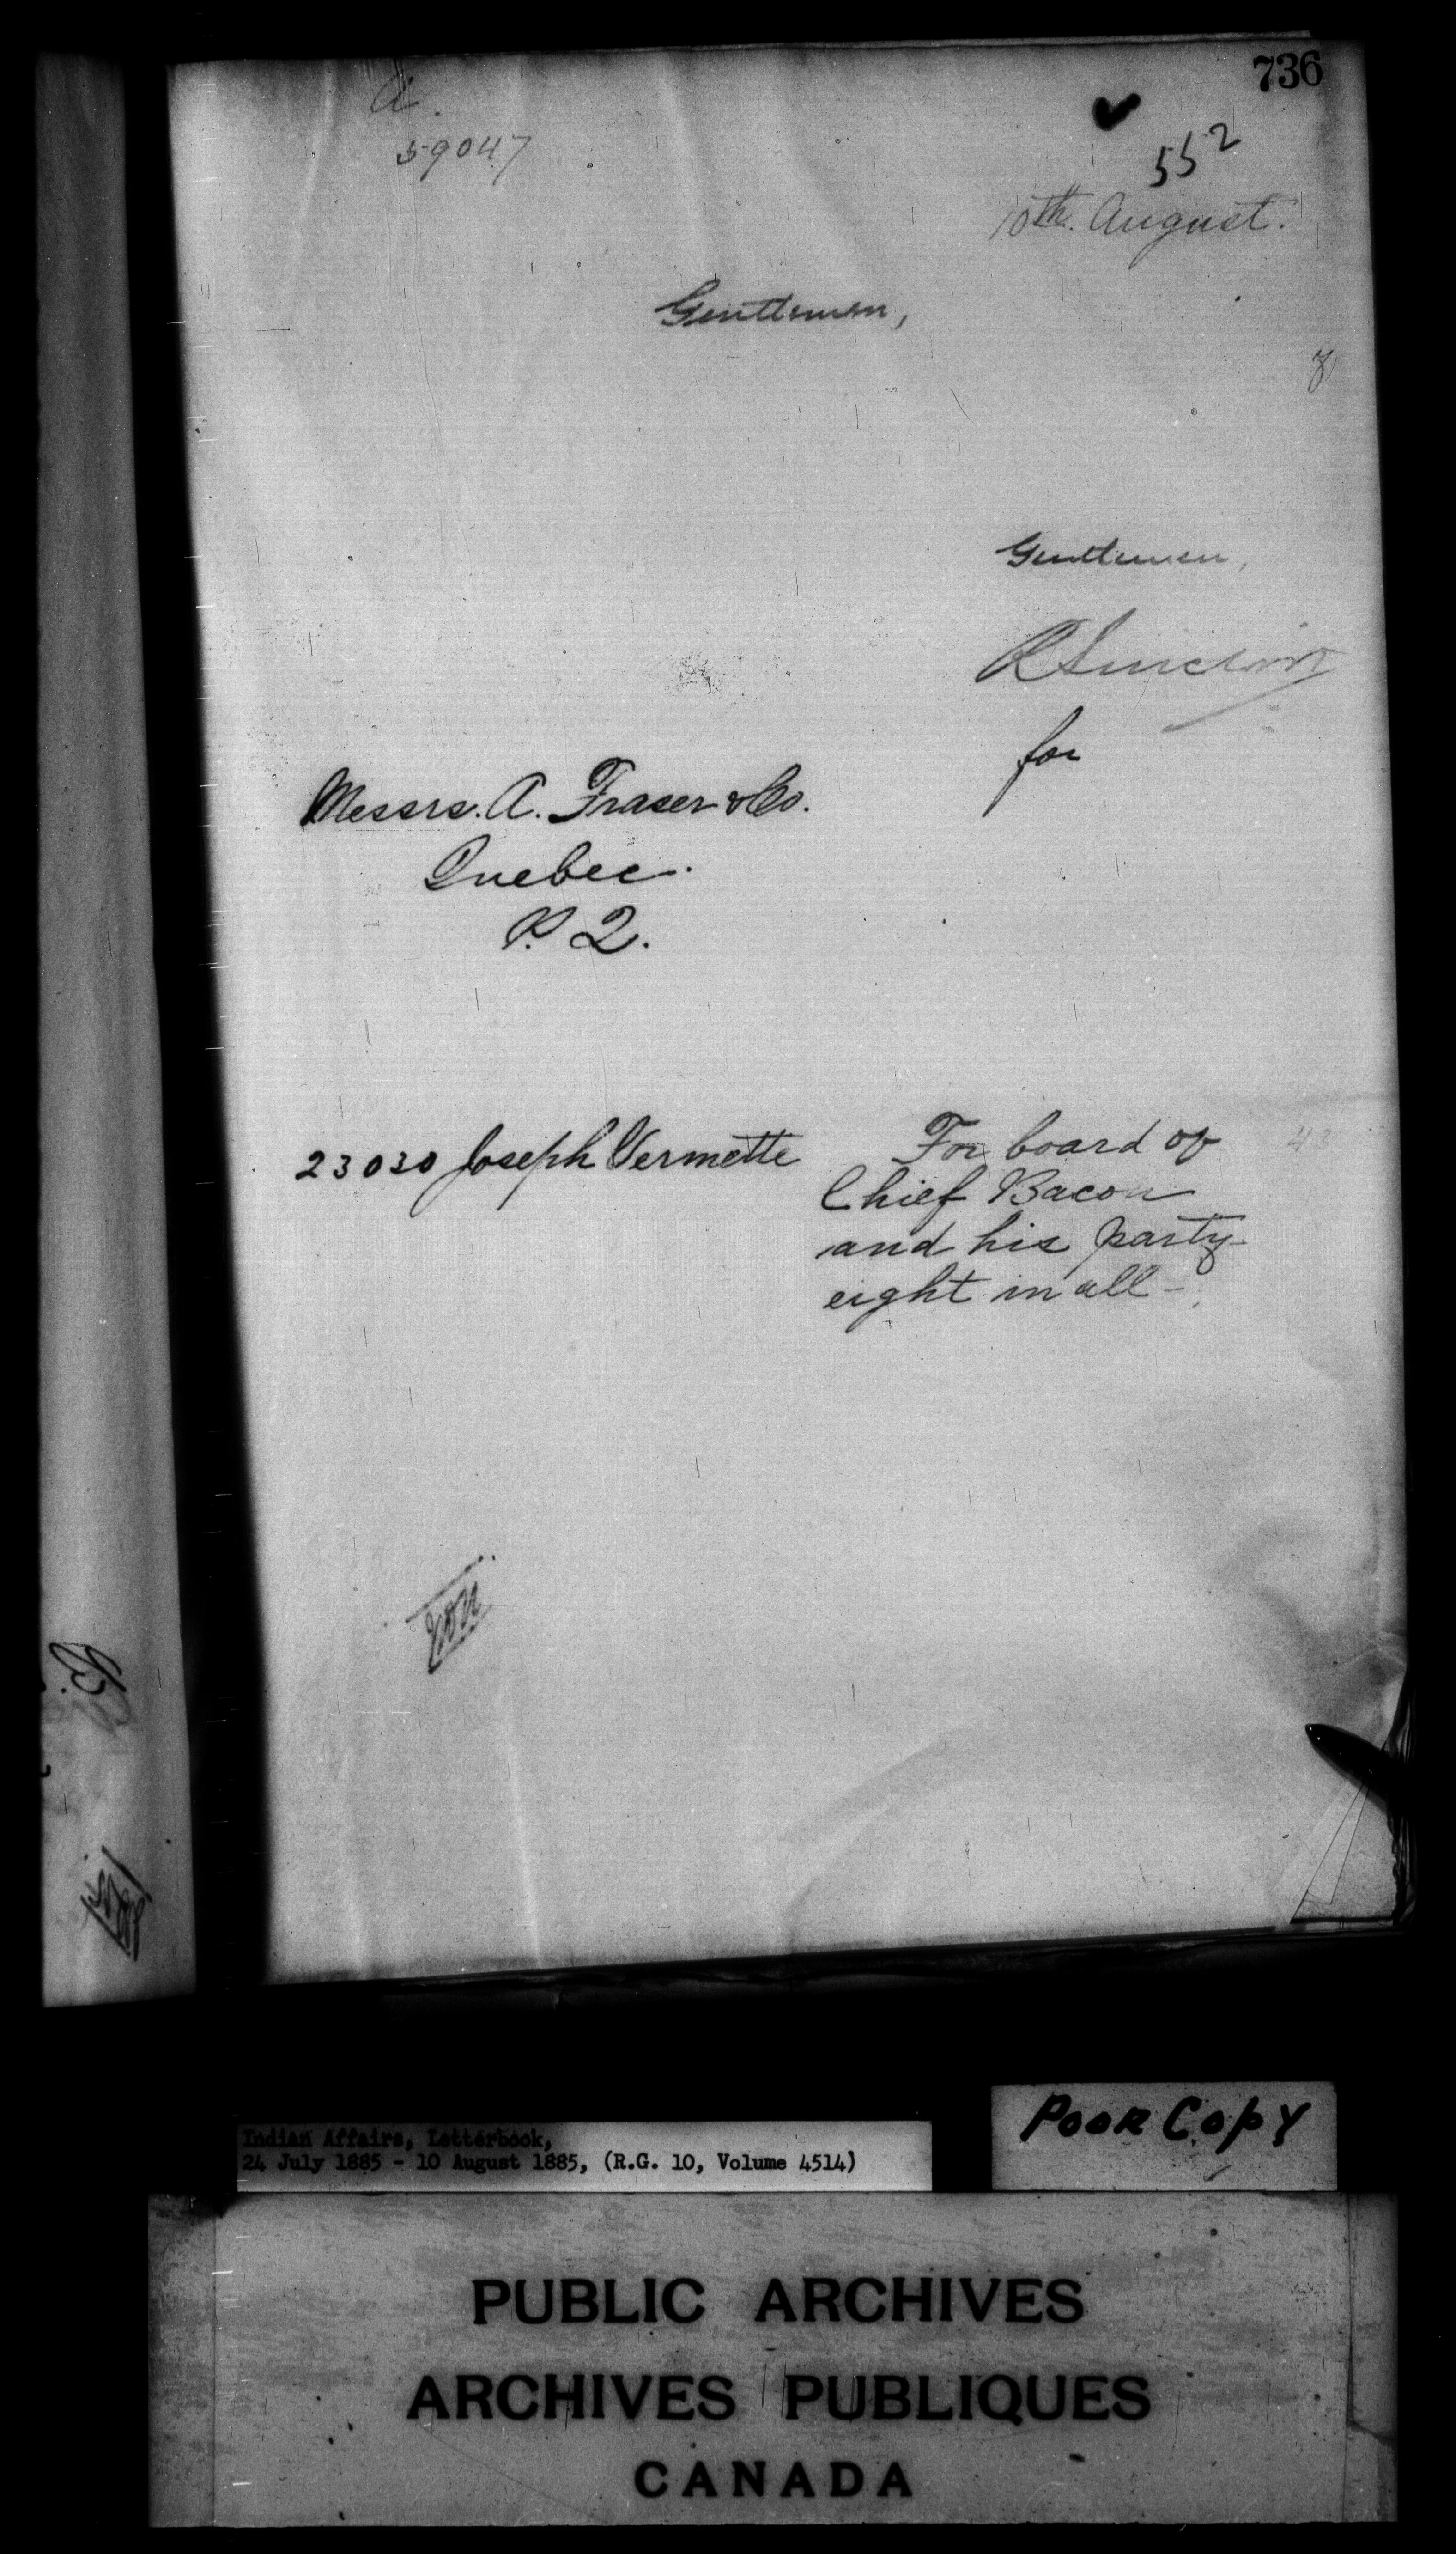 736
A
59047
552
10th. August.
Gentlemen,
8
Gentlemen,
R Sinclair
for
Messrs. A. Fraser & Co.
Quebec.
P. Q.
23030 Joseph Vermette
For board of
43
Chief Bacon
and his party
eight in all -
Indian Affairs, Letterbook,
24 July 1885 - 10 August 1885, (R.G. 10, Volume 4514)
POOR COPY
PUBLIC ARCHIVES
ARCHIVES PUBLIQUES
CANADA